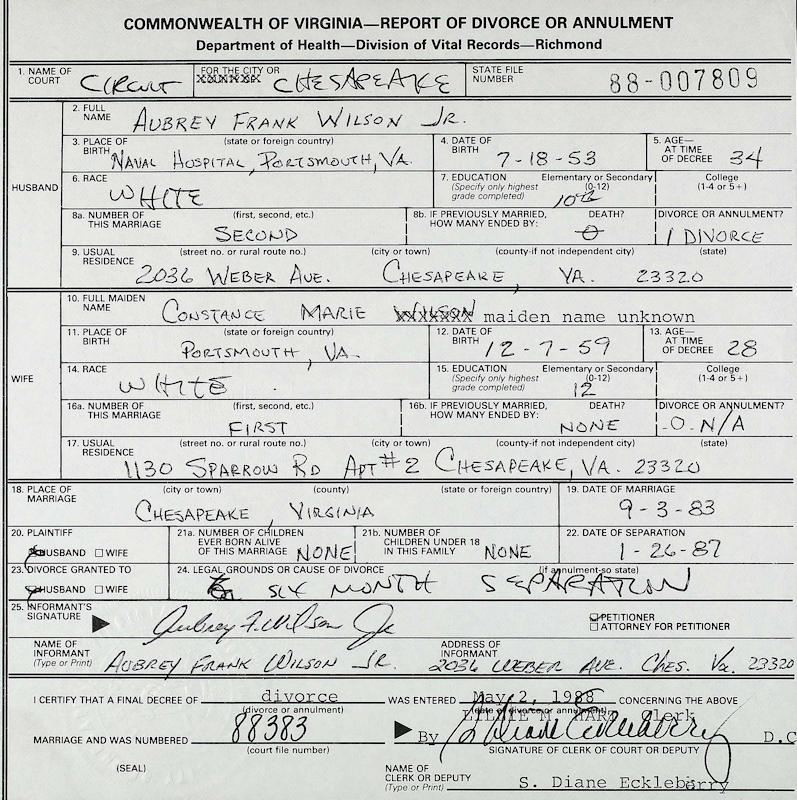 COMMONWEALTH OF VIRGINIA—REPORT OF DIVORCE OR ANNULMENT
Department of Health—Division of Vital Records—Richmond
1. NAME OF COURT CIRCUIT FOR THE CITY OR CHESAPEAKE STATE FILE NUMBER 88-007809
HUSBAND
2. FULL NAME AUBREY FRANK WILSON JR.
3. PLACE OF BIRTH (state or foreign country) NAVAL HOSPITAL, PORTSMOUTH, VA. 4. DATE OF BIRTH 7-18-53 5. AGE—AT TIME OF DECREE 34
6. RACE WHITE 7. EDUCATION (Specify only highest grade completed) Elementary or Secondary (0-12) 10th College (1-4 or 5+)
8a. NUMBER OF THIS MARRIAGE (first, second, etc.) SECOND 8b. IF PREVIOUSLY MARRIED, HOW MANY ENDED BY: DEATH? 0 DIVORCE OR ANNULMENT? 1 DIVORCE
9. USUAL RESIDENCE (street no. or rural route no.) (city or town) (county-if not independent city) (state)
2036 WEBER AVE. CHESAPEAKE, VA. 23320
WIFE
10. FULL MAIDEN NAME CONSTANCE MARIE WILSON maiden name unknown
11. PLACE OF BIRTH (state or foreign country) PORTSMOUTH, VA. 12. DATE OF BIRTH 12-7-59 13. AGE—AT TIME OF DECREE 28
14. RACE WHITE 15. EDUCATION (Specify only highest grade completed) Elementary or Secondary (0-12) 12 College (1-4 or 5+)
16a. NUMBER OF THIS MARRIAGE (first, second, etc.) FIRST 16b. IF PREVIOUSLY MARRIED, HOW MANY ENDED BY: DEATH? NONE DIVORCE OR ANNULMENT? -0- N/A
17. USUAL RESIDENCE (street no. or rural route no.) (city or town) (county-if not independent city) (state)
1130 SPARROW RD APT #2 CHESAPEAKE, VA. 23320
18. PLACE OF MARRIAGE (city or town) (county) (state or foreign country) CHESAPEAKE, VIRGINIA 19. DATE OF MARRIAGE 9-3-83
20. PLAINTIFF HUSBAND WIFE 21a. NUMBER OF CHILDREN EVER BORN ALIVE OF THIS MARRIAGE NONE 21b. NUMBER OF CHILDREN UNDER 18 IN THIS FAMILY NONE 22. DATE OF SEPARATION 1-26-87
23. DIVORCE GRANTED TO HUSBAND WIFE 24. LEGAL GROUNDS OR CAUSE OF DIVORCE (if annulment-so state) SIX MONTH SEPARATION
25. INFORMANT'S SIGNATURE Aubrey F. Wilson Jr PETITIONER
ATTORNEY FOR PETITIONER
NAME OF INFORMANT (Type or Print) AUBREY FRANK WILSON JR. ADDRESS OF INFORMANT 2036 WEBER AVE. CHES. VA. 23320
I CERTIFY THAT A FINAL DECREE OF divorce WAS ENTERED May 2, 1988 CONCERNING THE ABOVE
(divorce or annulment) (date of divorce or annulment)
LILLIE M. HART, Clerk
MARRIAGE AND WAS NUMBERED 88383 By S Diane Eckleberry D.C
(court file number) SIGNATURE OF CLERK OF COURT OR DEPUTY
(SEAL) NAME OF CLERK OR DEPUTY (Type or Print) S. Diane Eckleberry